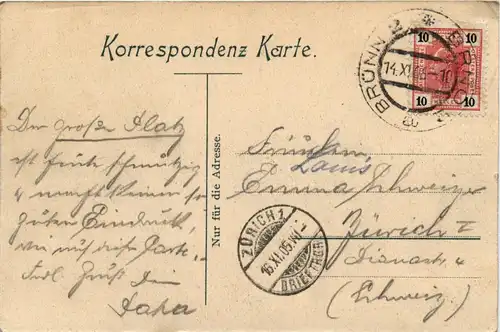 Korrespondenz Karte.
10 10
10 10
BRÜNN 2 14.XI.
Der große Platz
ist heute schmutzig
u macht keinen so
guten Eindruck,
wie auf dieser Karte.
Nur für die Adresse.
Fräulein
Emma Schweizer
Zürich I
4
(Schweiz)
ZÜRICH 1
16.XI.05
BRIEFTRGR.